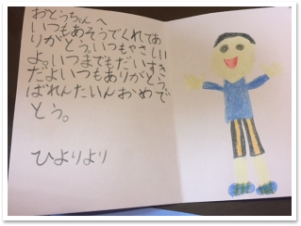 おとうちゃんへ
いつもあそうでくれてあ
りがとう。いつもやさしい
よ。いつまでもだいすき
だよいつもありがとう。
ばれんたいんおめで
とう。
ひよりより